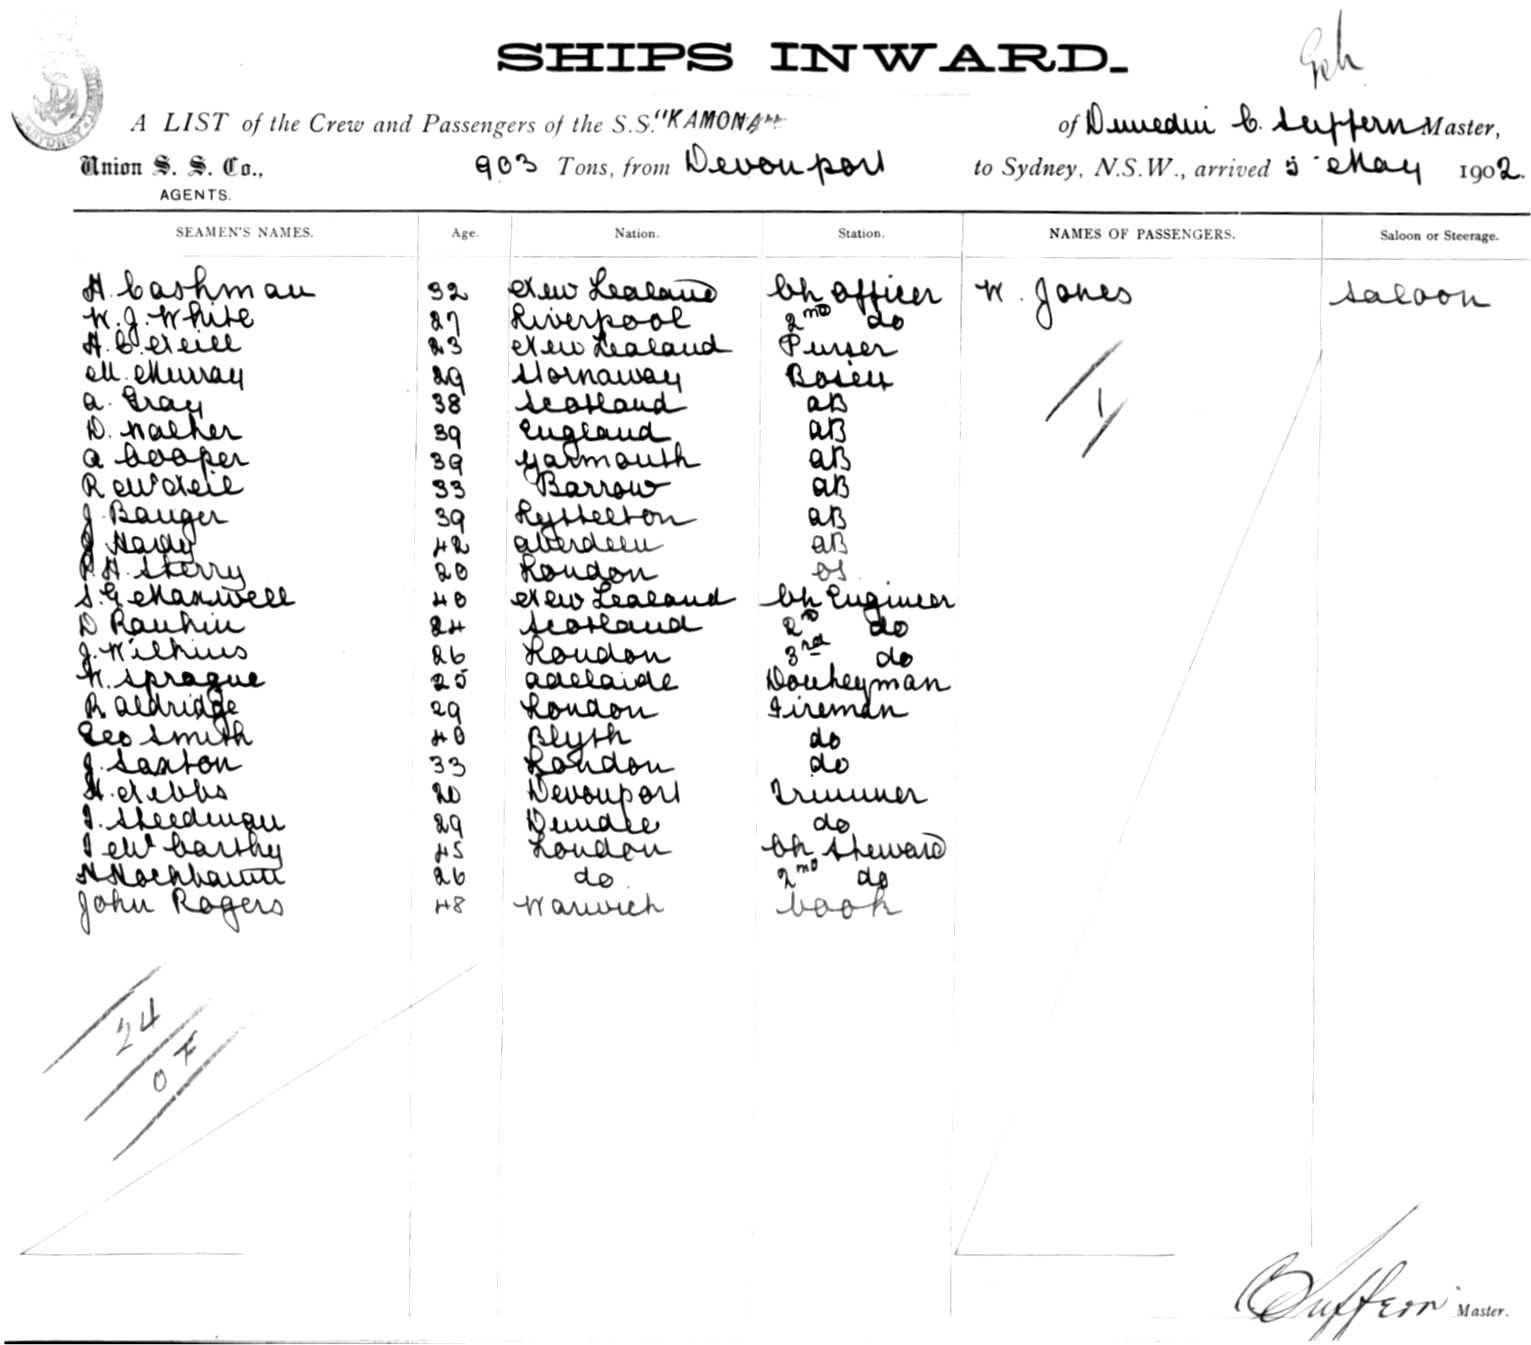 SHIPS INWARD.
A LIST of the Crew and Passengers of the S.S. "KAMONA" of Dunedin C. Suffern Master,
Union S. S. Co., 903 Tons, from Devonport to Sydney, N.S.W., arrived 5 May 1902.
AGENTS.
SEAMEN'S NAMES. Age. Nation. Station. NAMES OF PASSENGERS. Saloon or Steerage.
H. Cashman 32 New Zealand Ch Officer W. Jones Saloon
W. J. White 27 Liverpool 2nd do
H. C. Neill 23 New Zealand Purser
M. Murray 29 Stornaway Bosun
A. Gray 38 Scotland AB
D. Walker 39 England AB
A Cooper 39 Yarmouth AB
R McNeil 33 Barrow AB
J. Bauger 39 Lyttelton AB
J Hardy 42 Aberdeen AB
P. H. Sherry 20 London OS
S. G. Maxwell 40 New Zealand Ch Engineer
D Rankin 24 Scotland 2nd do
J. Wilkins 26 London 3rd do
W. Sprague 25 Adelaide Donkeyman
R Aldridge 29 London Fireman
Geo Smith 40 Blyth do
J. Saxton 33 London do
H. Nebbs 20 Devonport Trimmer
T. Steedman 29 Dundee do
T McCarthy 45 London Ch Steward
26 do 2nd do
John Rogers 48 Warwick Cook
1
24
0
C Suffern Master.